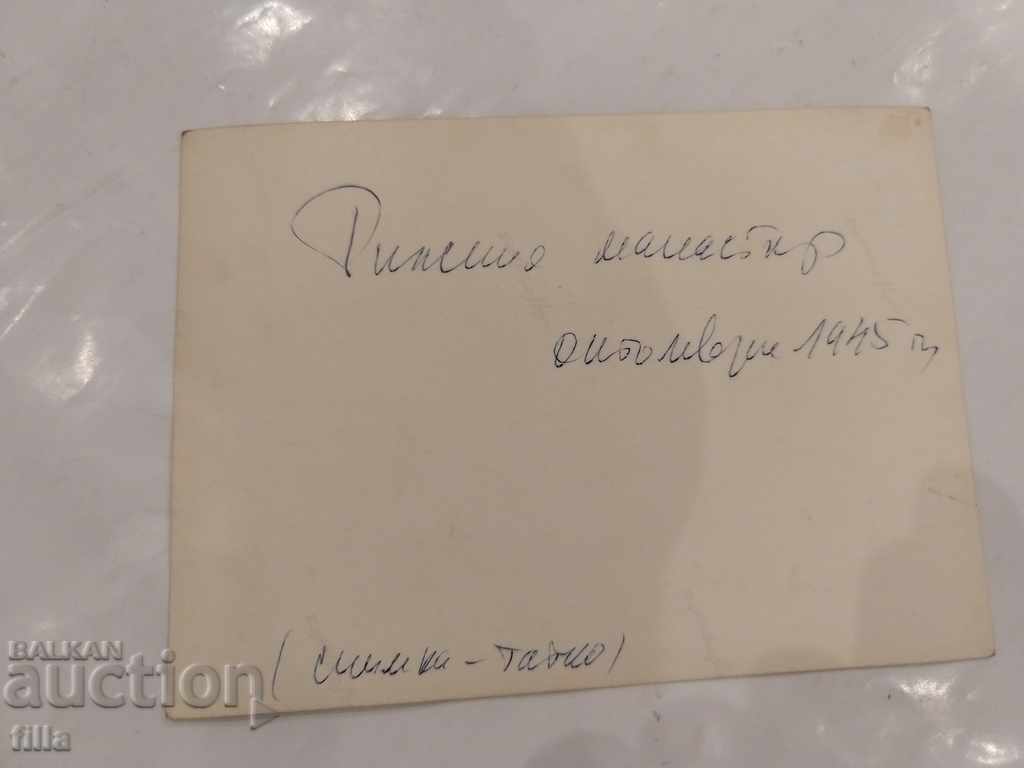 Рилския манастир
октомври 1945 г.
(снимка - татко)
BALKAN
auction
filla